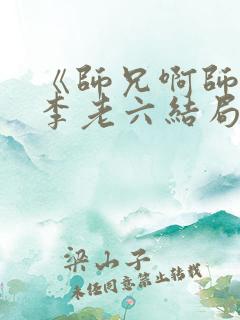 《師兄啊師
李老六結局
梁山子
未任同意禁止转载